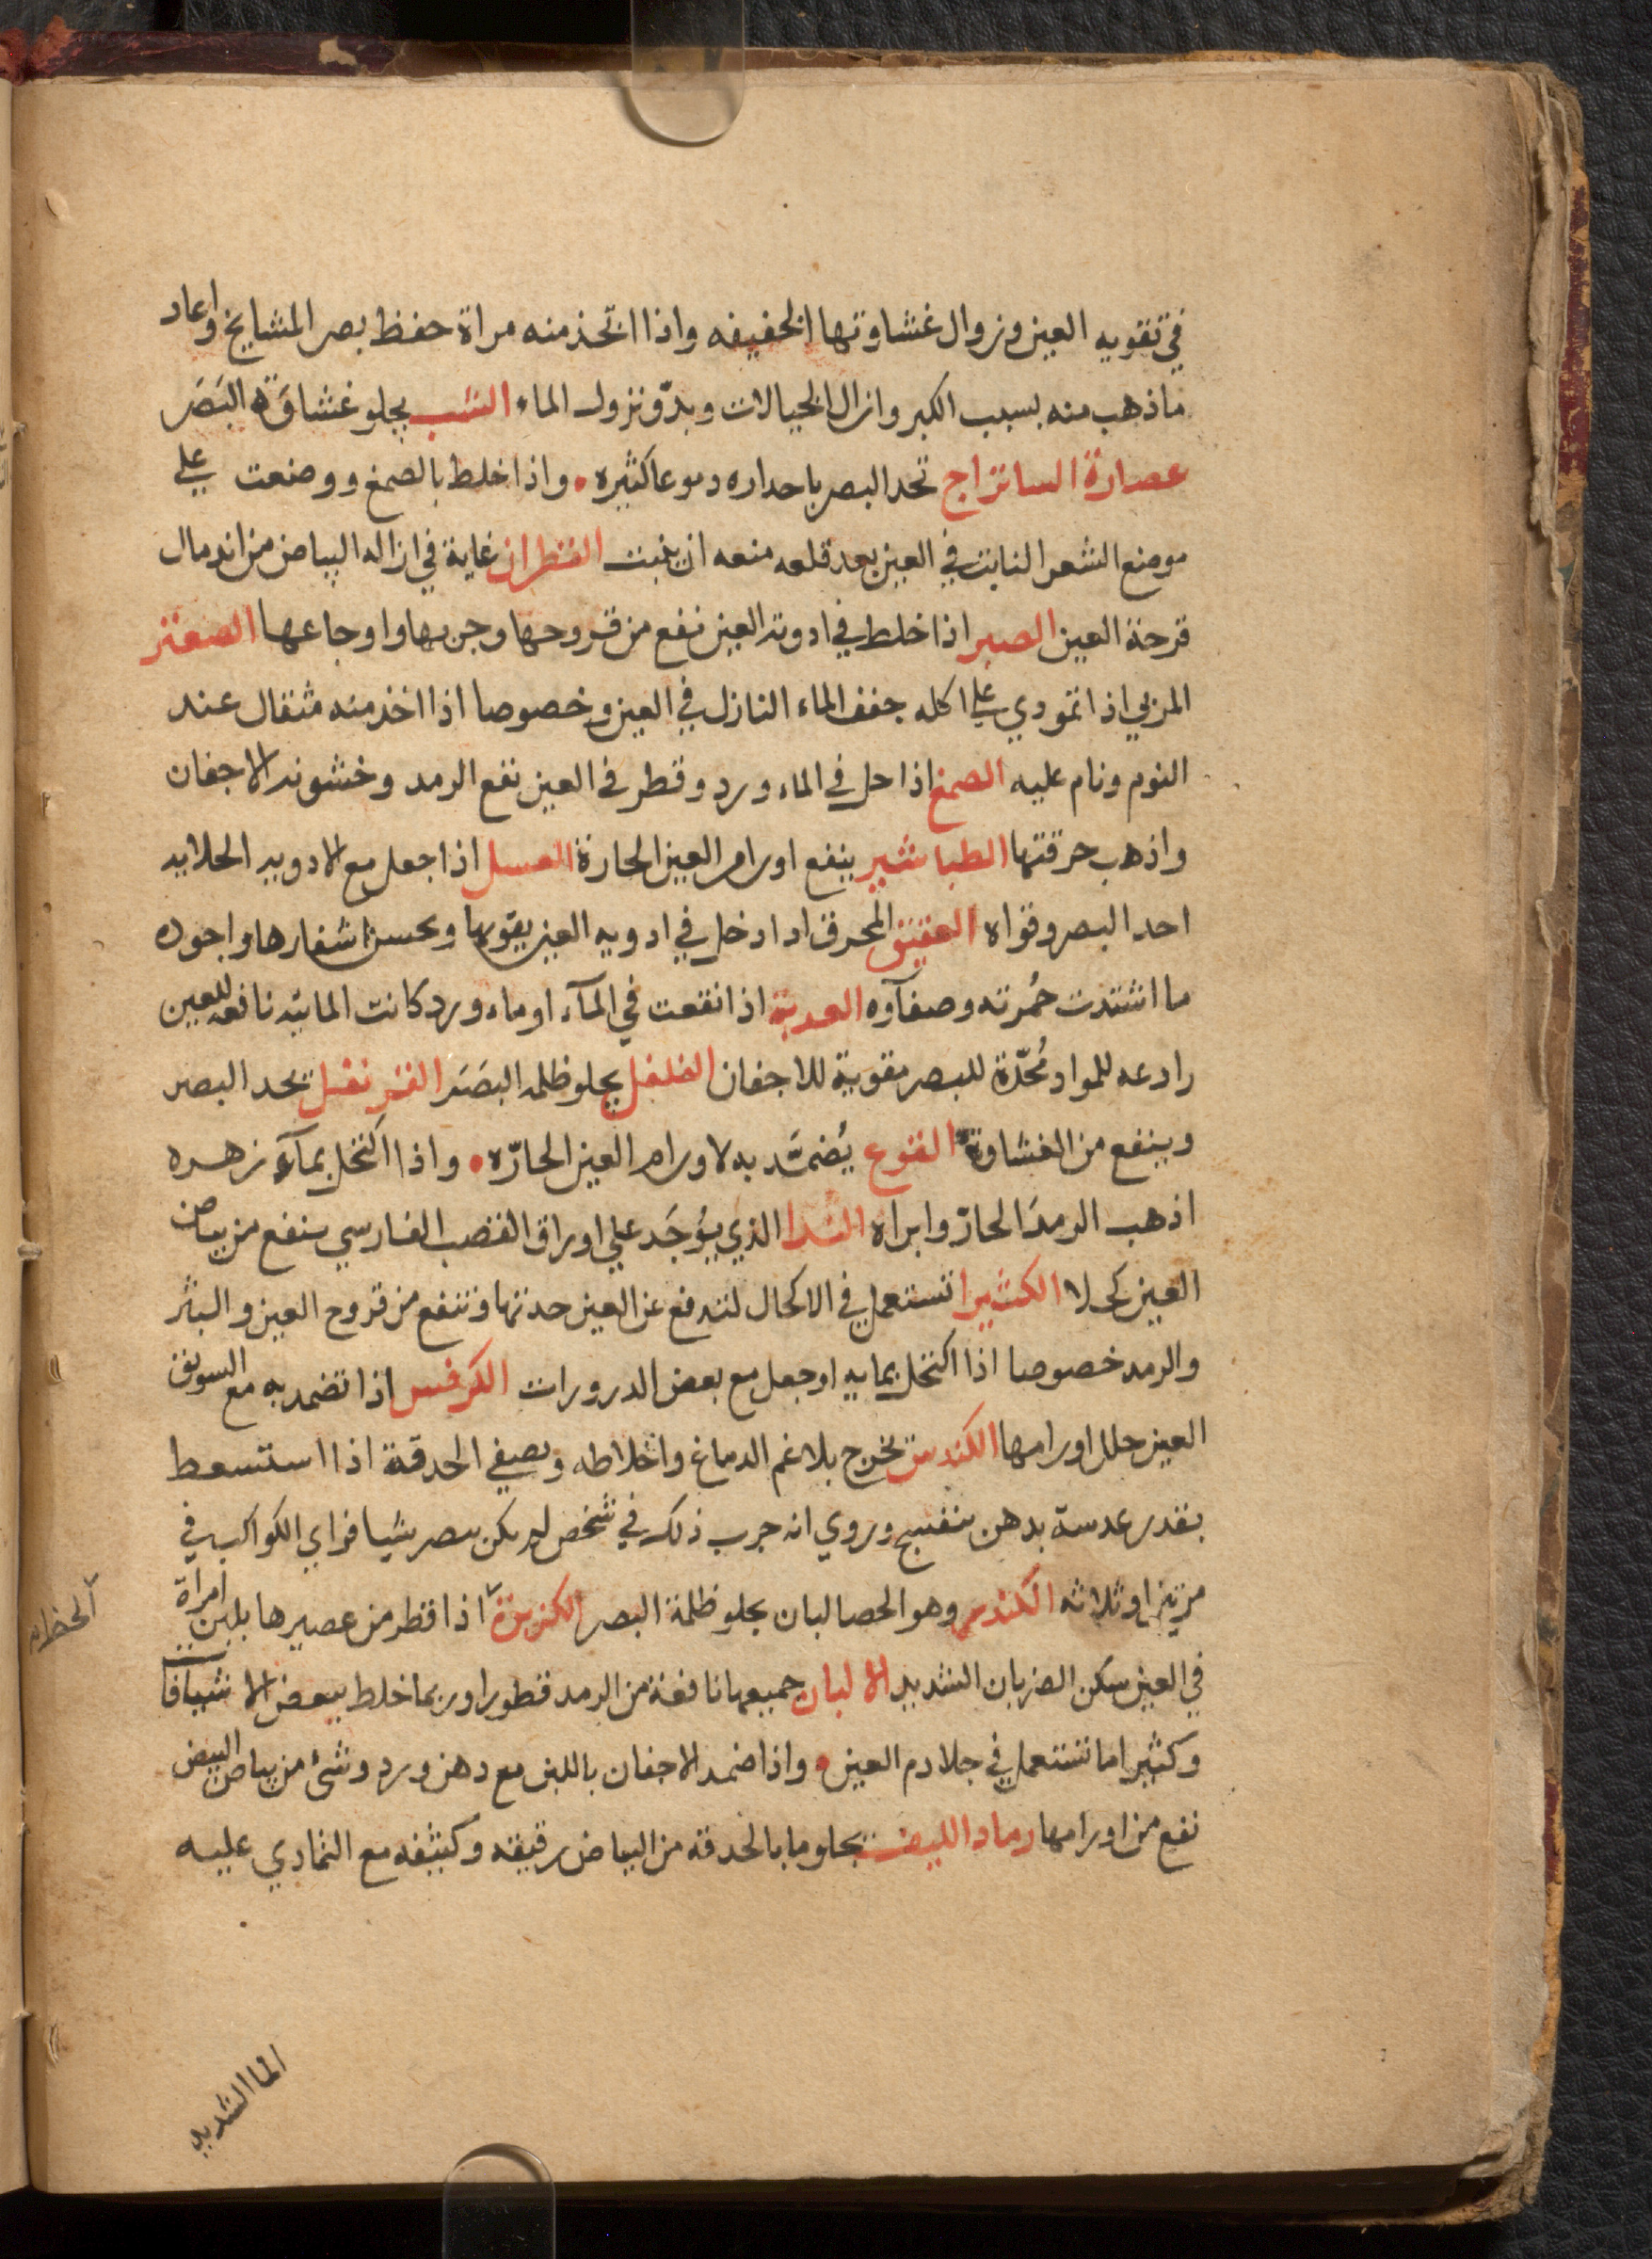 في تقويه العين وزوال غشاوتها الخفيفه واذا اتخذ منه مراة حفظ بصر المشايخ واعاد
ماذهب منه بسبب الكبر وازال الخيالات وبدو نزول الماء الشب يجلو غشاوة البَصَر
عصارة الساتراج تحد البصر باحداره دموعا كثيره واذا خلط بالصمغ ووضعت علي
موضع الشعر النابت في العين بعد قلعه منعه ان ينبت القطران غاية في ازاله البياض من اندمال
قرحة العين الصبر اذا خلط في ادويه العين نفع من قروحها وجربها واوجاعها الصعتر
المربي اذا اتمودي علي اكله جفف الماء النازل في العين وخصوصا اذا اخذ منه مثقال عند
النوم ونام عليه الصمغ اذا حل في الماء ورد وقطر في العين نفع الرمد وخشونه الاجفان
واذهب حرقتها الطباشير ينفع اورام العين الحارة العسل اذا جعل مع الادويه الحلايه
احد البصر وقواه العقيق المحرق اذا دخل في ادويه العين يقويها ويحسن اشفارها واجوده
ما اشتدت حُمرته وصفآوه العدبة اذا نقعت في المآء او ماء ورد كانت المائيه نافعه للعين
رادعه للمواد مُحدّة للبصر مقوية للاجفان الفلفل يجلو ظلمه البصَر القرنفل يحد البصر
وينفع من الغشاوة القنوع يُضمَّد به لاورام العين الحارّه واذا اكتحل بمآء زهره
اذهب الرمدَ الحارّ وابراه الندا الذي يُوجَد علي اوراق القصب الفارسي ينفع من بياض
العين كحلا الكثيرا تستعمل في الاكحال لتدفع عن العين حدتها وتنفع من قروح العين والبثر
والرمد خصوصا اذا اكتحل بمايه او جعل مع بعض الدرورات الكرفس اذا تضمد به مع السويق
العين حلل اورامها الكندس يخرج بلاغم الدماغ واخلاطه ويصفي الحدقة اذا استسعط
بقدر عدسة بدهن بنفسج وروي انه جرب ذلك في شخص لم يكن يبصر شيا فراي الكواكب في
مرتين او ثلاثه الكندر وهو الحصالبان يجلو ظلمة البصر الكزبرة اذا قطر من عصيرها بلبن امراة
في العين سكن الضربان الشديد الالبان جميعها نافعة من الرمد قطورا وربما خلط ببعض الاشيافا
وكثيرا ما تستعمل في جلا دم العين واذا ضمد الاجفان باللبن مع دهن ورد وشئ من بياض البيض
نفع من اورامها رماد الليف يجلو ما بالحدقه من البياض رقيقه وكثيفه مع التمادي عليه
الما الشديد